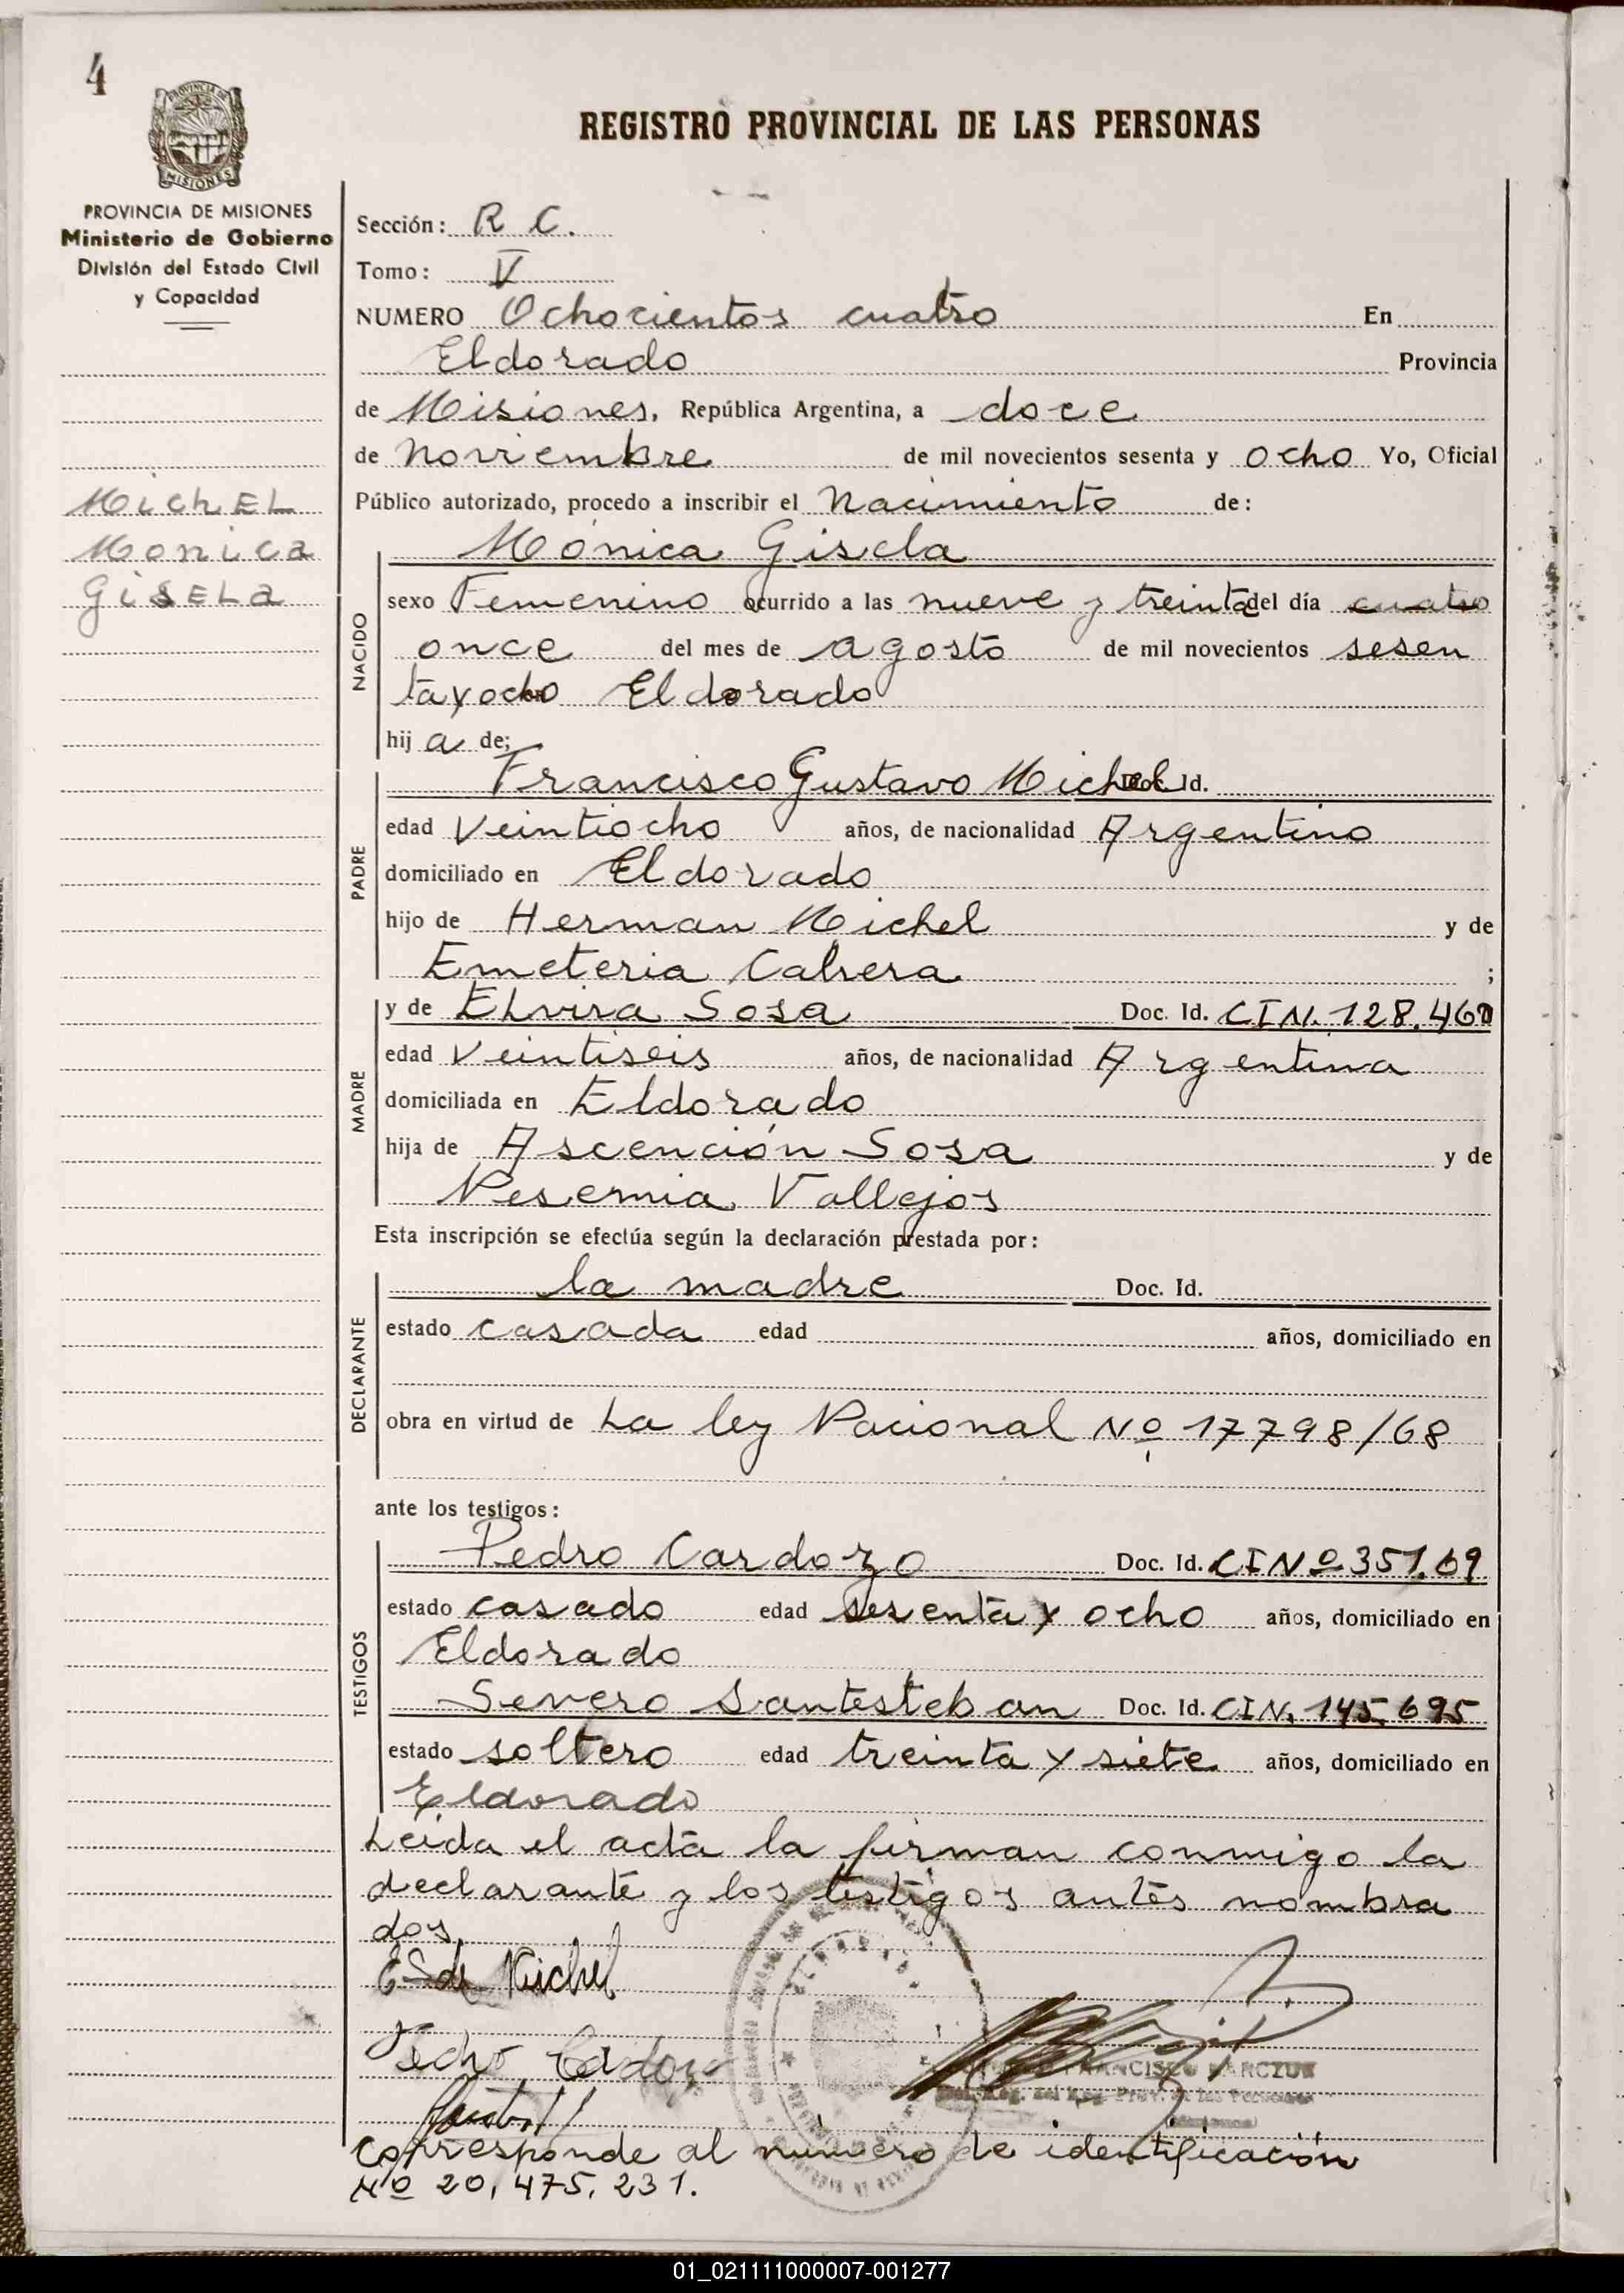 4
PROVINCIA DE MISIONES
Ministerio de Gobierno
División del Estado Civil
y Capacidad
MicHEL
Monica
GiSELa
REGISTRO PROVINCIAL DE LAS PERSONAS
Sección: R C.
Tomo: V
NUMERO Ochocientos cuatro En
Eldorado Provincia
de Misiones, República Argentina, a doce
de noviembre de mil novecientos sesenta y ocho Yo, Oficial
Público autorizado, procedo a inscribir el Nacimiento de:
NACIDO
Mónica Gisela
sexo Femenino ocurrido a las nueve y treinta del día cuatro
once del mes de agosto de mil novecientos sesen
ta y ocho Eldorado
hij a de;
PADRE
Francisco Gustavo Michel Doc. Id.
edad Veintiocho años, de nacionalidad Argentino
domiciliado en Eldorado
hijo de Herman Michel y de
Emeteria Cabrera ;
MADRE
y de Elvira Sosa Doc. Id. CIN. 128.460
edad Veintiseis años, de nacionalidad Argentina
domiciliada en Eldorado
hija de Ascención Sosa y de
Nesemia Vallejos
Esta inscripción se efectúa según la declaración prestada por:
DECLARANTE
la madre Doc. Id.
estado casada edad años, domiciliado en
obra en virtud de La ley Nacional Nº 17798/68
ante los testigos:
TESTIGOS
Pedro Cardozo Doc. Id. CI Nº 351.69
estado casado edad sesenta y ocho años, domiciliado en
Eldorado
Severo Santesteban Doc. Id. CIN. 145.695
estado soltero edad treinta y siete años, domiciliado en
Eldorado
Leida el acta la firman conmigo la
declarante y los testigos antes nombra
dos.
E S de Michel
Pedro Cardozo
FRANCISCO MARCZUK
Corresponde al número de identificación
Nº 20.475.231.
01_021111000007-001277